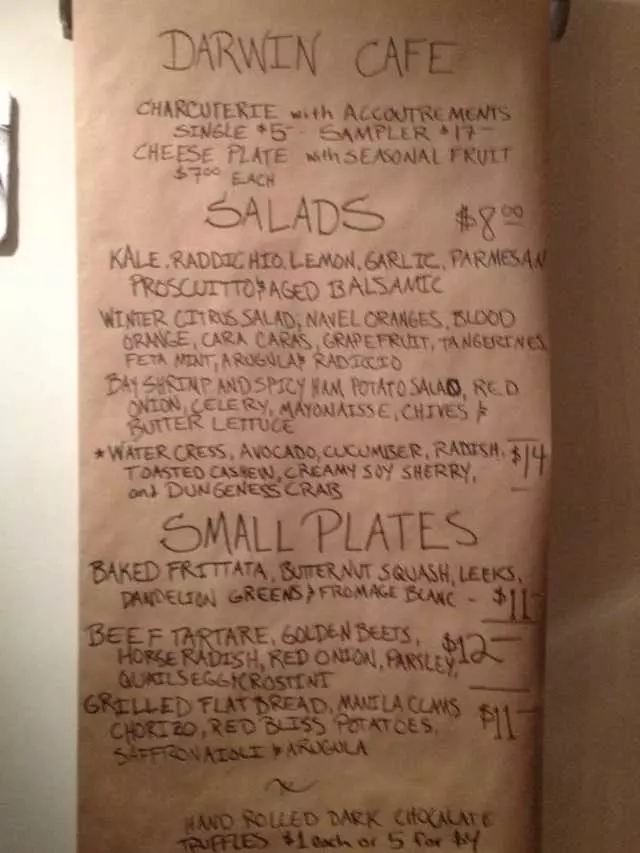 DARWIN CAFE
CHARCUTERIE with ACCOUTREMENTS
SINGLE $5- . SAMPLER $17-
CHEESE PLATE with SEASONAL FRUIT
$7.00 EACH
SALADS $8.00
KALE, RADDICHIO, LEMON, GARLIC, PARMESAN
PROSCUITTO & AGED BALSAMIC
WINTER CITRUS SALAD, NAVEL ORANGES, BLOOD
ORANGE, CARA CARAS, GRAPEFRUIT, TANGERINES
FETA MINT, ARUGULA & RADICCIO
BAY SHRIMP AND SPICY HAM, POTATO SALAD, RED
ONION, CELERY, MAYONAISSE, CHIVES &
BUTTER LETTUCE
* WATER CRESS, AVOCADO, CUCUMBER, RADISH, $14
TOASTED CASHEW, CREAMY SOY SHERRY,
and DUNGENESS CRAB
SMALL PLATES
BAKED FRITTATA, BUTTERNUT SQUASH, LEEKS,
DANDELION GREENS & FROMAGE BLANC - $11-
BEEF TARTARE, GOLDEN BEETS, $12-
HORSERADISH, RED ONION, PARSLEY,
QUAILS EGG & CROSTINI
GRILLED FLAT BREAD, MANILA CLAMS $11-
CHORIZO, RED BLISS POTATOES,
SAFFRON AIOLI & ARUGULA
HAND ROLLED DARK CHOCALATE
TRUFFLES $1 each or 5 for $4